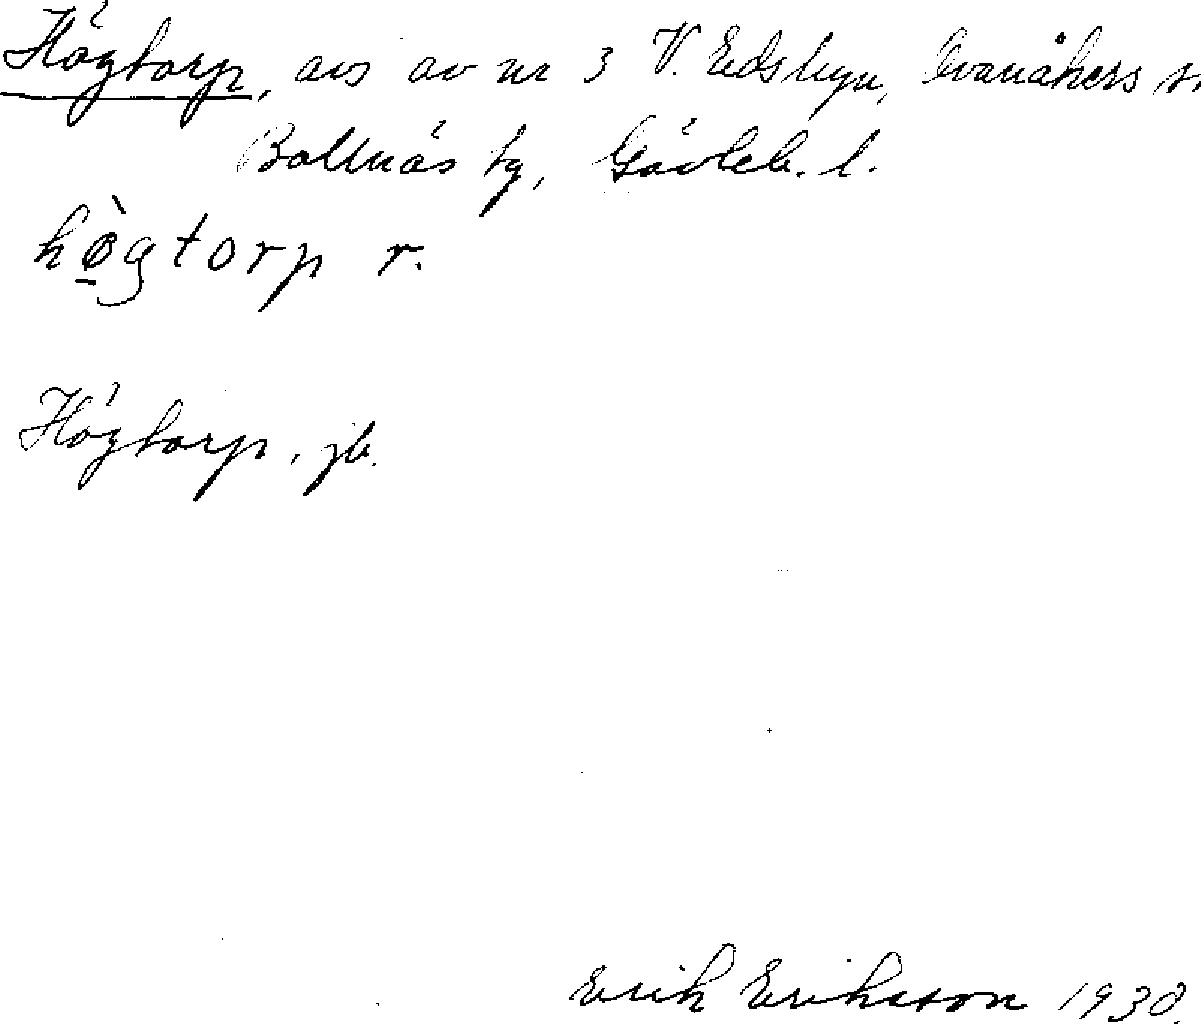 Högtorp, avs av nr 3 V. Edsbyn, Ovanåkers sn
Bollnäs tg, Gävleb. l.
hø̀gtorp r.
Högtorp, jb.
Erik Eriksson 1930.